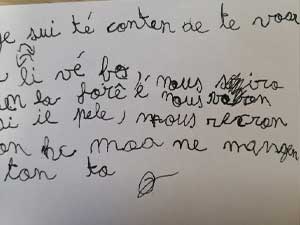 je sui té conten de te voir
li vé bo, nous siro
la forê é nous
i il pele, nous recron
on he maa ne mangen
ton to